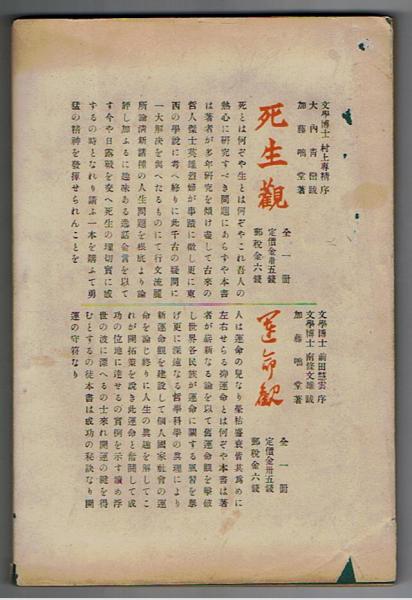 文學博士 村上專精序
大內青巒跋
加藤咄堂著
死生觀
全一冊
定價金卅五錢
郵稅金六錢
死とは何ぞや生とは何ぞやこれ吾人の
熱心に研究すべき問題にあらずや本書
は著者が多年研究を傾け盡して古來の
哲人傑士英雄烈婦が事蹟に徵し更に東
西の學說に考へ終りに此千古の疑問に
一大解決を與へたるものにて行文流麗
所論清新 の人生問題を根底より論
評し加ふるに趣味ある逸話金言を以て
す今や日露戰を交へ死生の理切實に感
するの時となれり請ふ一本を購ふて勇
猛の精神を發揮せられんことを
文學博士 前田慧雲序
文學博士 南條文雄跋
加藤咄堂著
運命觀
全一冊
定價金卅五錢
郵稅金六錢
人は運命の兒なり榮枯盛衰皆其爲めに
左右せらる抑運命とは何ぞや本書は著
者が嶄新なる論を以て舊運命觀を擊破
し世界各民族が運命に關する風習を擧
げ更に深遠なる哲學科學の眞理により
新運命觀を建設して個人國家社會の運
命を論じ終りに人生の眞趣を解してこ
れが開拓策を說き此運命と奮鬪して成
功の位地に達せるの實例を示す蹟め浮
世の波に漂へるの士來れ開運の鍵を得
むとするの徒本書は成功の秘訣なり開
運の守符なり